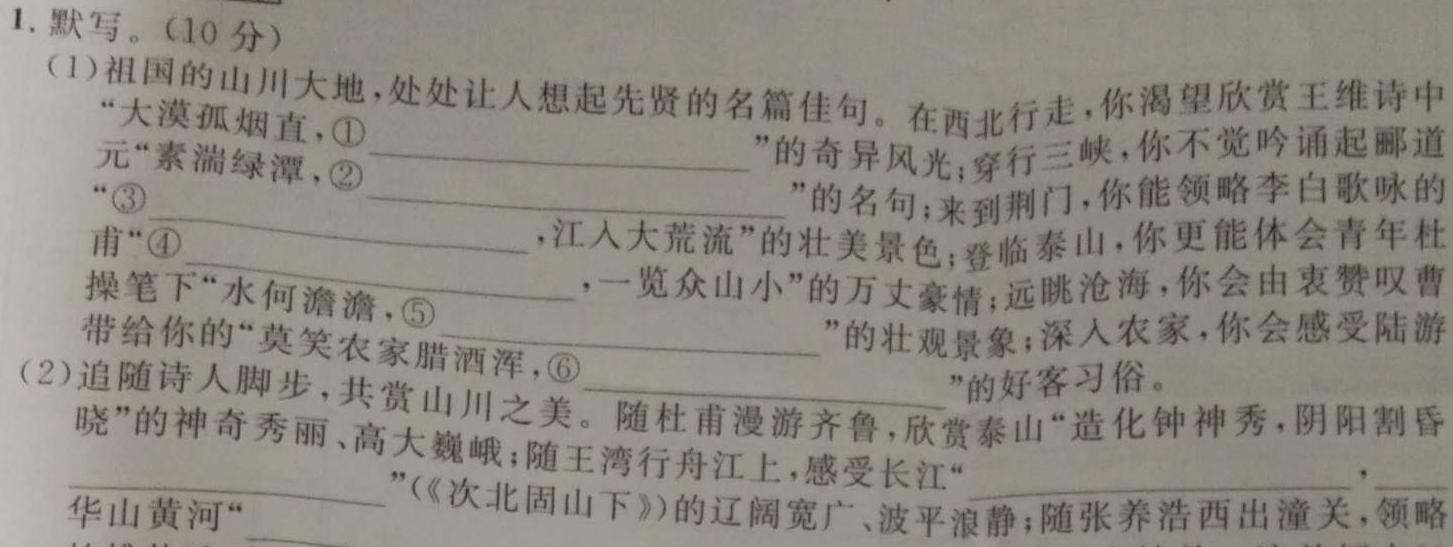 1. 默写。(10 分)
(1)祖国的山川大地,处处让人想起先贤的名篇佳句。在西北行走,你渴望欣赏王维诗中
“大漠孤烟直,①”的奇异风光;穿行三峡,你不觉吟诵起郦道
元“素湍绿潭,②”的名句;来到荆门,你能领略李白歌咏的
“③,江入大荒流”的壮美景色;登临泰山,你更能体会青年杜
甫“④,一览众山小”的万丈豪情;远眺沧海,你会由衷赞叹曹
操笔下“水何澹澹,⑤”的壮观景象;深入农家,你会感受陆游
带给你的“莫笑农家腊酒浑,⑥”的好客习俗。
(2)追随诗人脚步,共赏山川之美。随杜甫漫游齐鲁,欣赏泰山“造化钟神秀,阴阳割昏
晓”的神奇秀丽、高大巍峨;随王湾行舟江上,感受长江“,
”(《次北固山下》)的辽阔宽广、波平浪静;随张养浩西出潼关,领略
华山黄河“